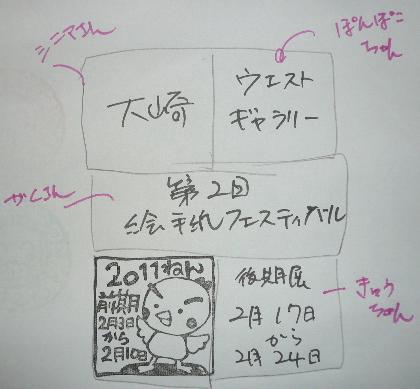 シニマさん
ぽんぽこ
ちゃん
大崎
ウエスト
ギャラリー
がくさん
第2回
絵手紙フェスティバル
2011ねん
前期
2月3日
から
2月10日
後期展
2月17日
から
2月24日
きゅう
ちゃん